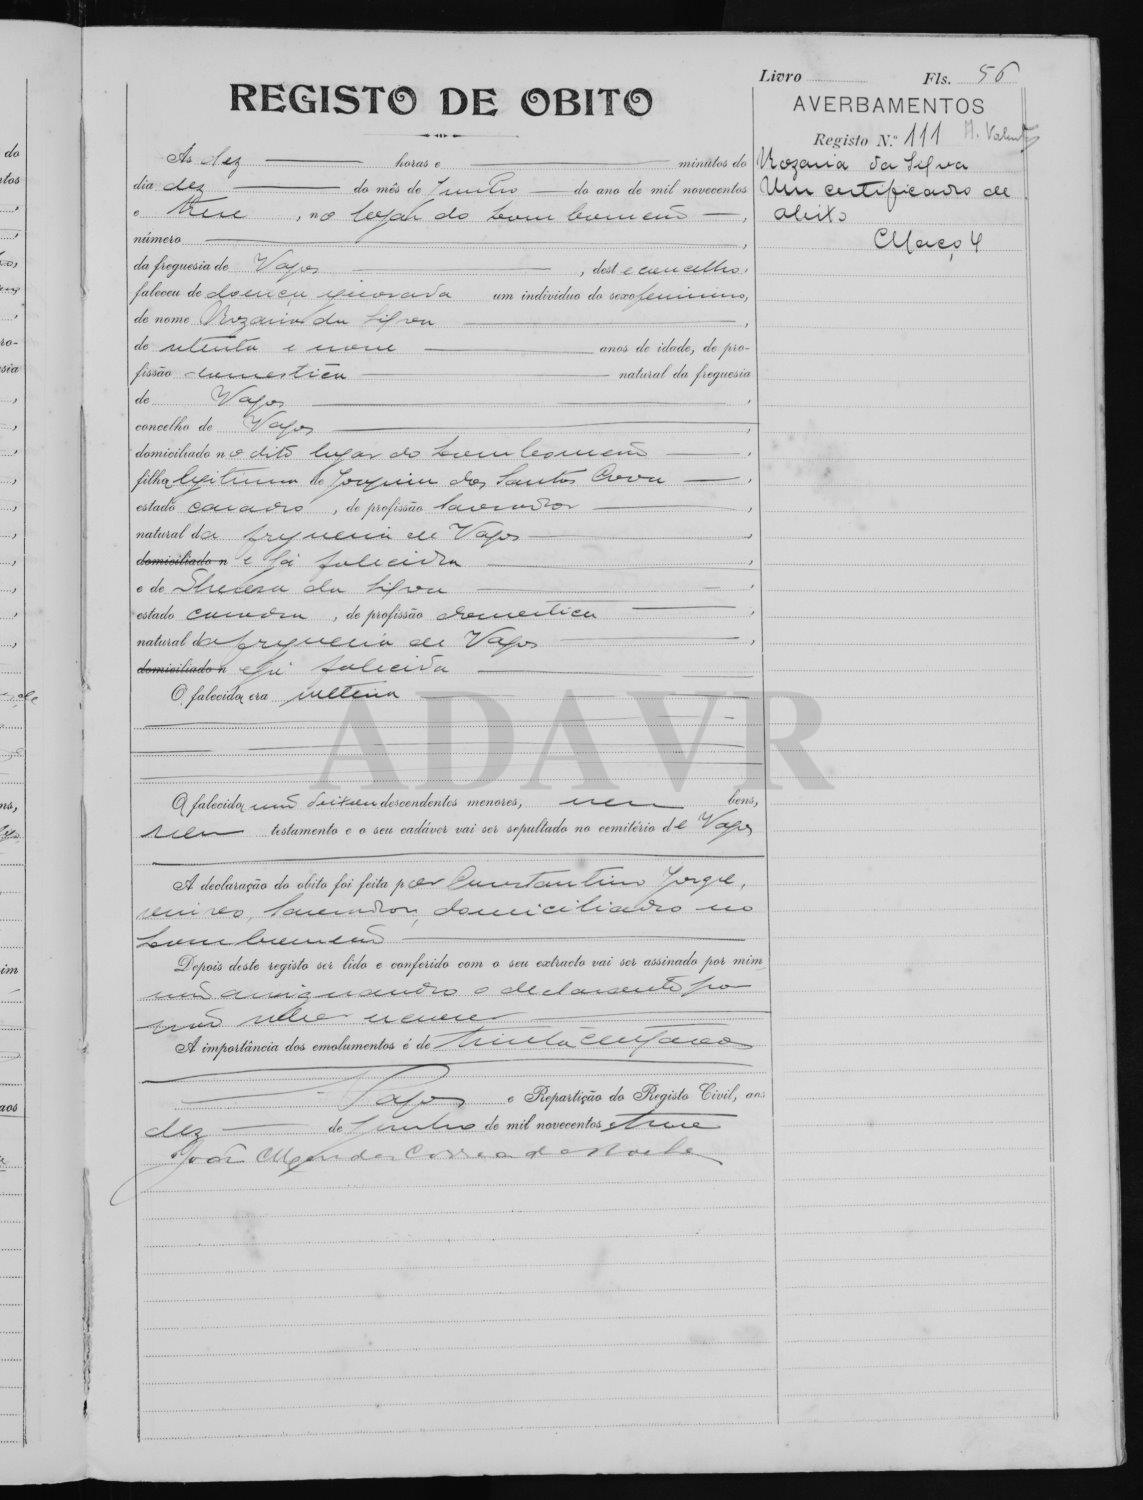 Livro Fls. 56
REGISTO DE OBITO
AVERBAMENTOS
Registo N.º 111
Rozaria da Silva
Um certificado de
obito
Março 4
Ás dez horas e minutos do
dia dez do mês de Junho do ano de mil novecentos
e treze, no logar do Lombomeão,
número
da freguesia de Vagos, deste concelho,
faleceu de doença ignorada um individuo do sexo feminino,
de nome Rozaria da Silva,
de setenta e nove anos de idade, de pro-
fissão domestica natural da freguesia
de Vagos,
concelho de Vagos,
domiciliado no dito lugar do Lombomeão,
filha legitima de Joaquim dos Santos,
estado casado, de profissão lavrador,
natural da freguesia de Vagos,
domiciliado n e já falecido,
e de Thereza da Silva,
estado casada, de profissão domestica,
natural da freguesia de Vagos,
domiciliado n e já falecida
O falecida era solteira
ADAVR
O falecida não deixou descendentes menores, nem bens,
nem testamento e o seu cadáver vai ser sepultado no cemitério de Vagos
A declaração do obito foi feita por Constantino Jorge,
lavrador, domiciliado no
Lombomeão
Depois deste registo ser lido e conferido com o seu extracto vai ser assinado por mim
não assignando o declarante por
não saber escrever
A importância dos emolumentos é de trinta centavos
Vagos e Repartição do Registo Civil, aos
dez de Junho de mil novecentos e treze
João Mendes Correa da Rocha